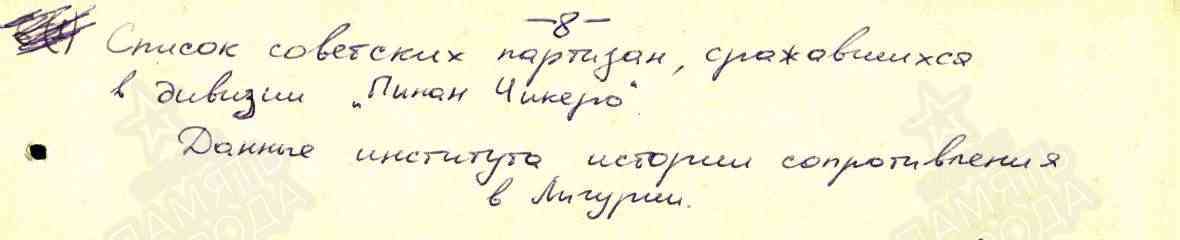 -8-
Список советских партизан, сражавшихся
в дивизии „Пинан Чикеро"
Данные института истории сопротивления
в Лигурии.
ПАМЯТЬ
НАРОДА
ПАМЯТЬ
НАРОДА